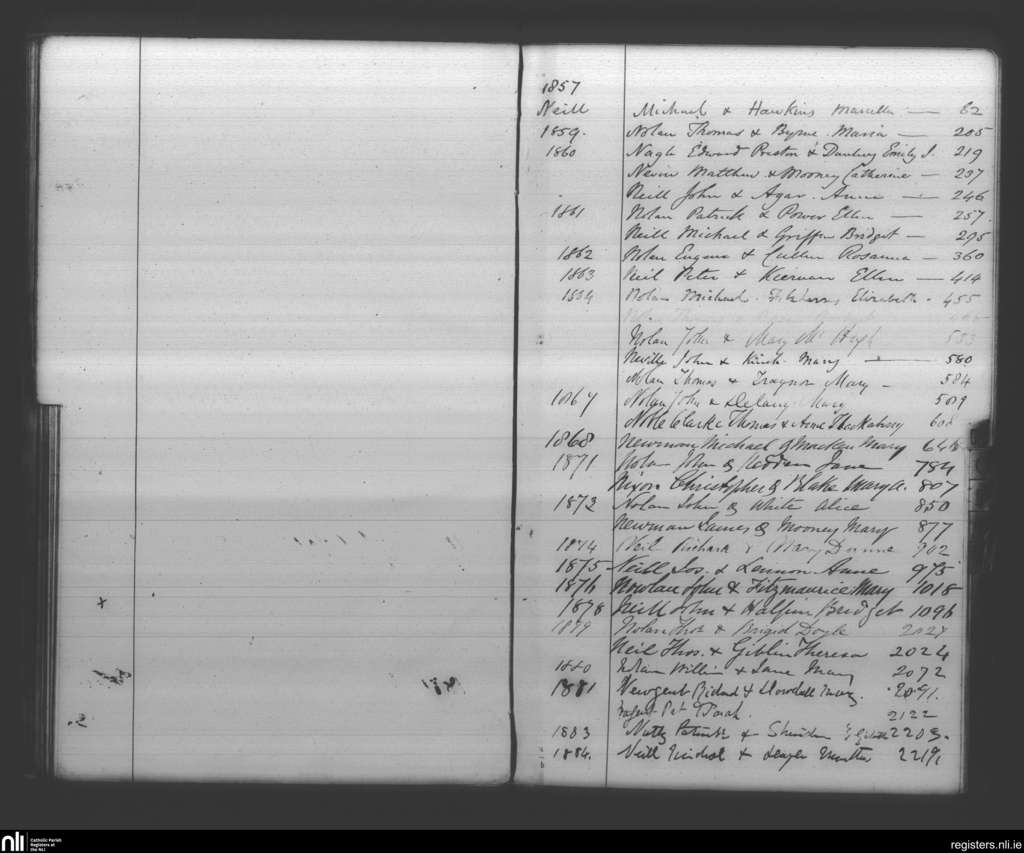 1857
Neill Michael & Hawkins Marcella — 62
1859. Nolan Thomas & Byrne Maria — 205
1860 Nagle Edward Preston & Emily J. 219
Nevin Matthew & Mooney Catherine — 237
Neill John & Agar Anne — 246
1861 Nolan Patrick & Power Ellen — 257
Neill Michael & Griffin Bridget — 295
1862 Nolan Eugene & Cullen Rosanna — 360
1863 Neil Peter & Kiernan Ellen — 414
Nolan Michael Elizabeth - 455
Nolan John & Mary Mc Hugh 533
Neville John & Mary — 580
Nolan Thomas & Traynor Mary - 584
1867 Nolan John & Delany Mary 589
Noble Clarke Thomas & Anne
1868 Newman Michael & Mary 646
1871 Nolan John & Jane 784
Nixon Christopher & Blake Mary A. 807
1873 Nolan John & White Alice 850
Newman James & Mooney Mary 877
1874 Neil Richard & Mary Dunne 902
1875 Neill Jos. & Lennon Anne 975
1876 Nowlan John & Fitzmaurice Mary 1018
1878 Neill John & Halpin Bridget 1096
1879 Nolan Thos & Brigid Doyle 2027
Neil Thos. & Giblin Theresa 2024
1880 Nolan William & Mary 2072
1881 Newgent Richard & Dowdall Mary. 2091.
Pat 2122
1883 Patrick & Sheridan 2203.
1884. Neill Michael & 2219
nli
Catholic Parish
Registers at
the NLI
registers.nli.ie